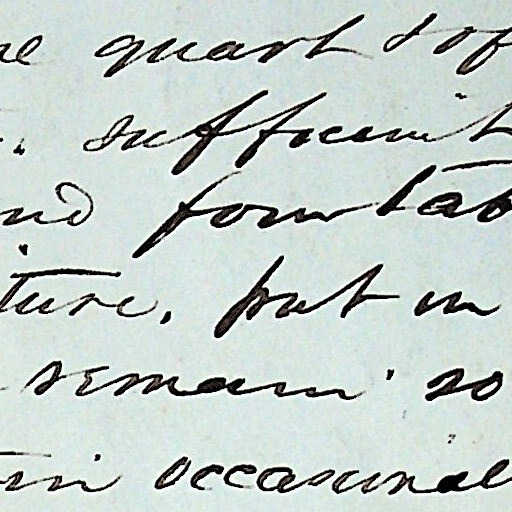 quart & of
sufficient
and four tab
ture, put in
remain so
occasional